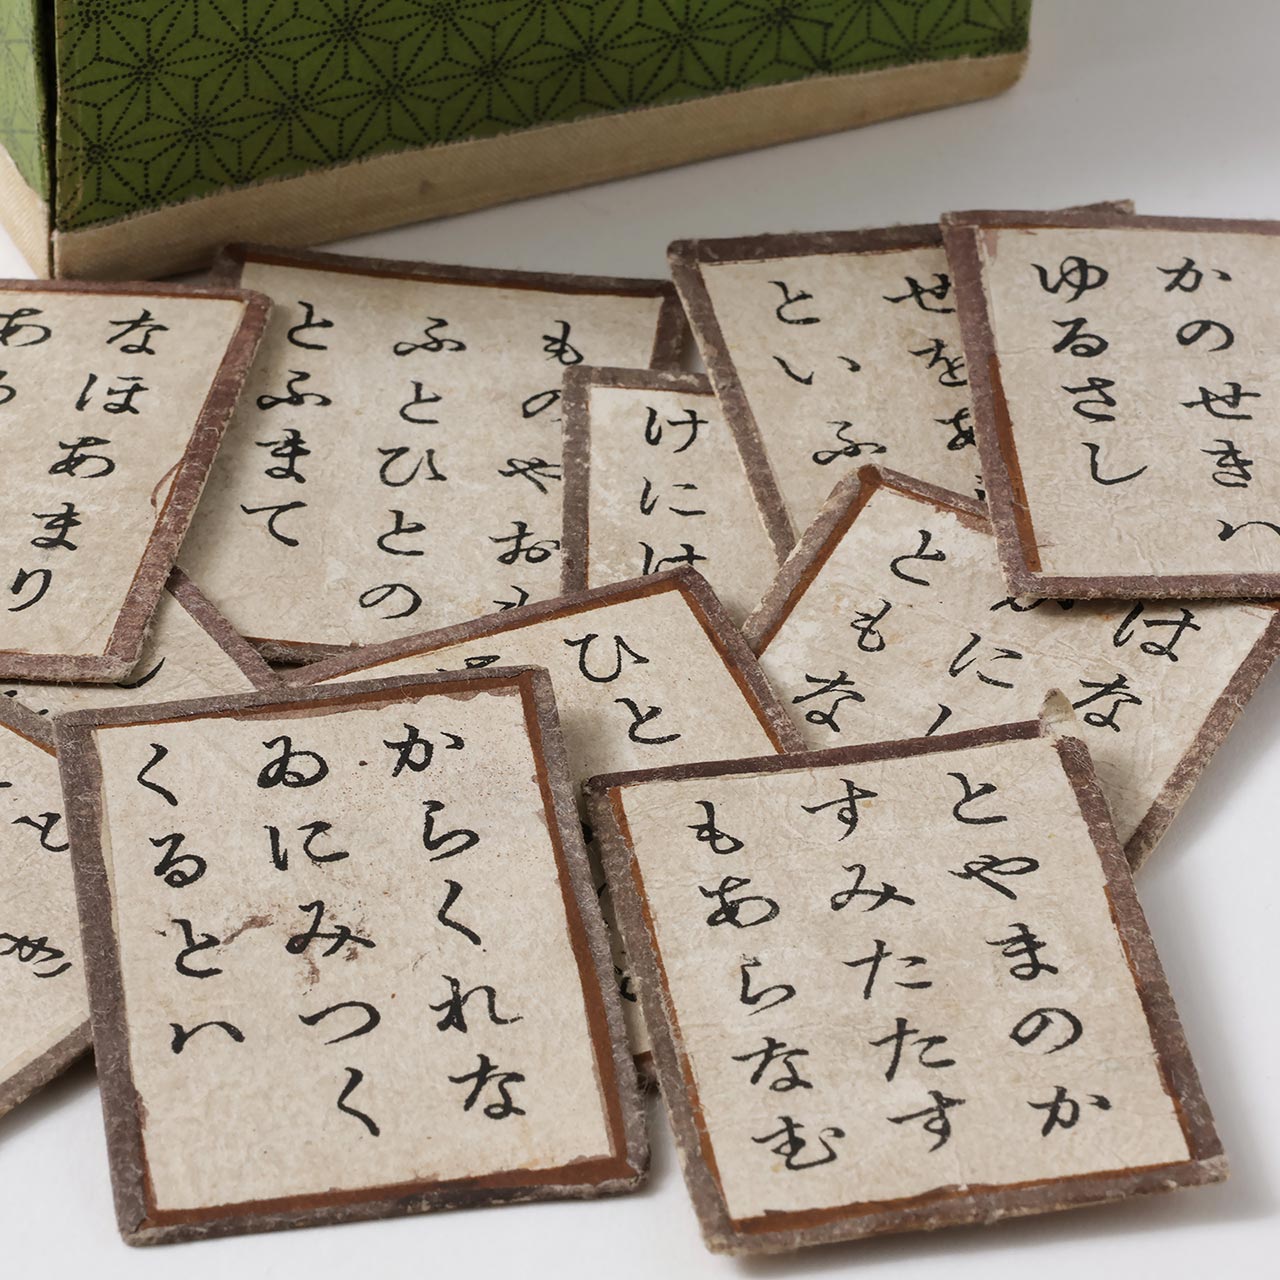 かのせきハ
ゆるさし
せをあ
といふ
けにけ
ものやお
ふとひとの
とふまて
なほあまり
ある
はな
に
ともな
ひと
とやまのか
すみたたす
もあらなむ
からくれな
ゐにみつく
くるとハ